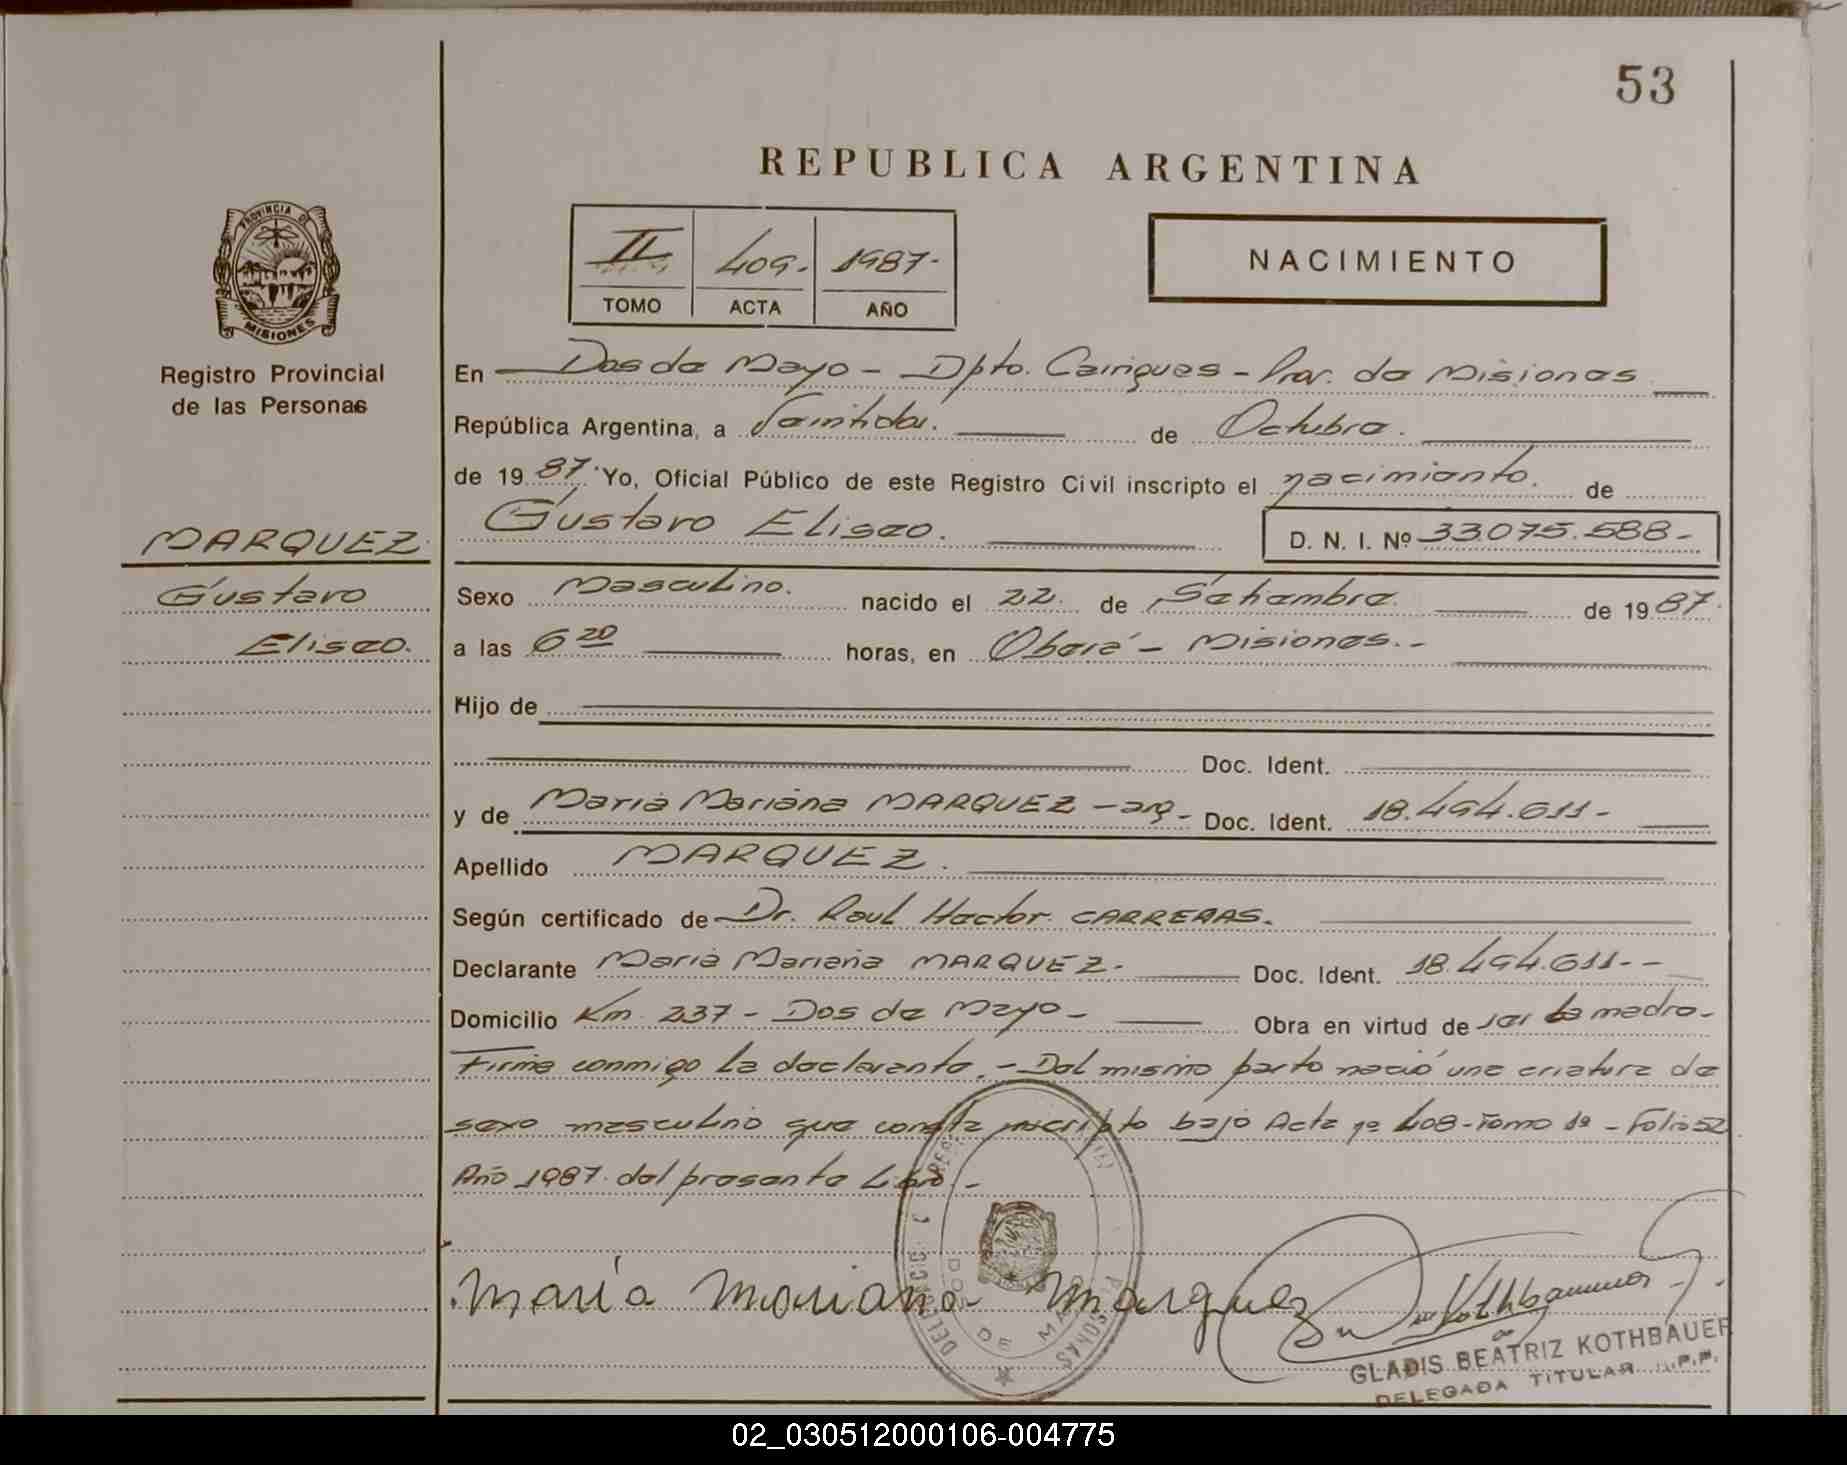 53
REPUBLICA ARGENTINA
PROVINCIA DE
MISIONES
Registro Provincial
de las Personas
II 409.- 1987.-
TOMO ACTA AÑO
NACIMIENTO
En Dos de Mayo - Dpto. Cainguas - Prov. de Misiones
República Argentina, a Veintidos. de Octubre.
de 19 87. Yo, Oficial Público de este Registro Civil inscripto el nacimiento. de
MARQUEZ.
Gustavo Eliseo. D. N. I. Nº 33.075.588-
Gustavo
Sexo Masculino. nacido el 22 de Setiembre. de 19 87.
Eliseo.
a las 6 20 horas, en Oberá - Misiones.-
Hijo de
Doc. Ident.
y de María Mariana MARQUEZ - arg- Doc. Ident. 18.494.611-
Apellido MARQUEZ.
Según certificado de Dr. Raul Hector CARRERAS.
Declarante María Mariana MARQUEZ.- Doc. Ident. 18.494.611--
Domicilio Km. 237 - Dos de Mayo- Obra en virtud de ser la madre-
Firma conmigo la declarante.- Del mismo parto nació una criatura de
sexo masculino que consta inscripto bajo Acta nº 408-Tomo 1º - Folio 52
Año 1987 del presente Libro.-
María Mariana Marquez Kothbauer
DOS DE MAYO
GLADIS BEATRIZ KOTHBAUER
DELEGADA TITULAR R.P.P.
02_030512000106-004775